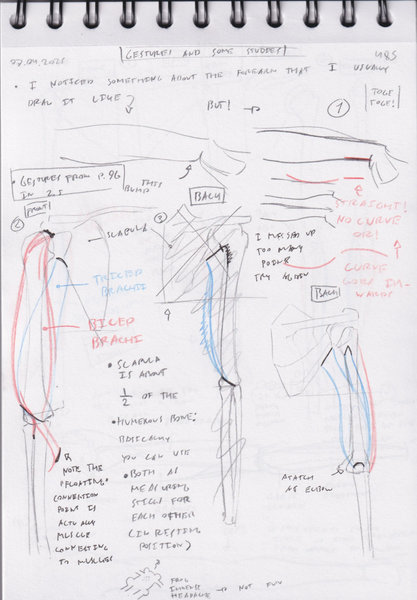 GESTURES AND SOME STUDIES
485
• I NOTICED SOMETHING ABOUT THE FOREARM THAT I USUALLY
DRAW IT LIKE
BUT!
1
TOGE
TOGE!
• GESTURES FROM P. 96
IN 25
THIS
BUMP
2
FRONT
SCAPULA
3
BACK
TRICEP
BRACHII
BICEP
BRACHI
I MESSED UP
TOO MANY
POINTS
TRY AGAIN
STRAIGHT!
NO CURVE
OR!
CURVE
GOES IN-
WARDS
BACK
• SCAPULA
IS ABOUT
1/2 OF THE
• HUMEROUS BONE:
BASICALLY
YOU CAN USE
• BOTH AS
MEASURING
STICKS FOR
EACH OTHER
(IN RESTING
POSITION)
NOTE THE
FLOATING
CONVENTION
POINT IS
ACTUALLY
MUSCLE
CONNECTING
TO MUSCLES
ATTATCH
AT ELBOW
FROG
HEADACHE → NOT FUN